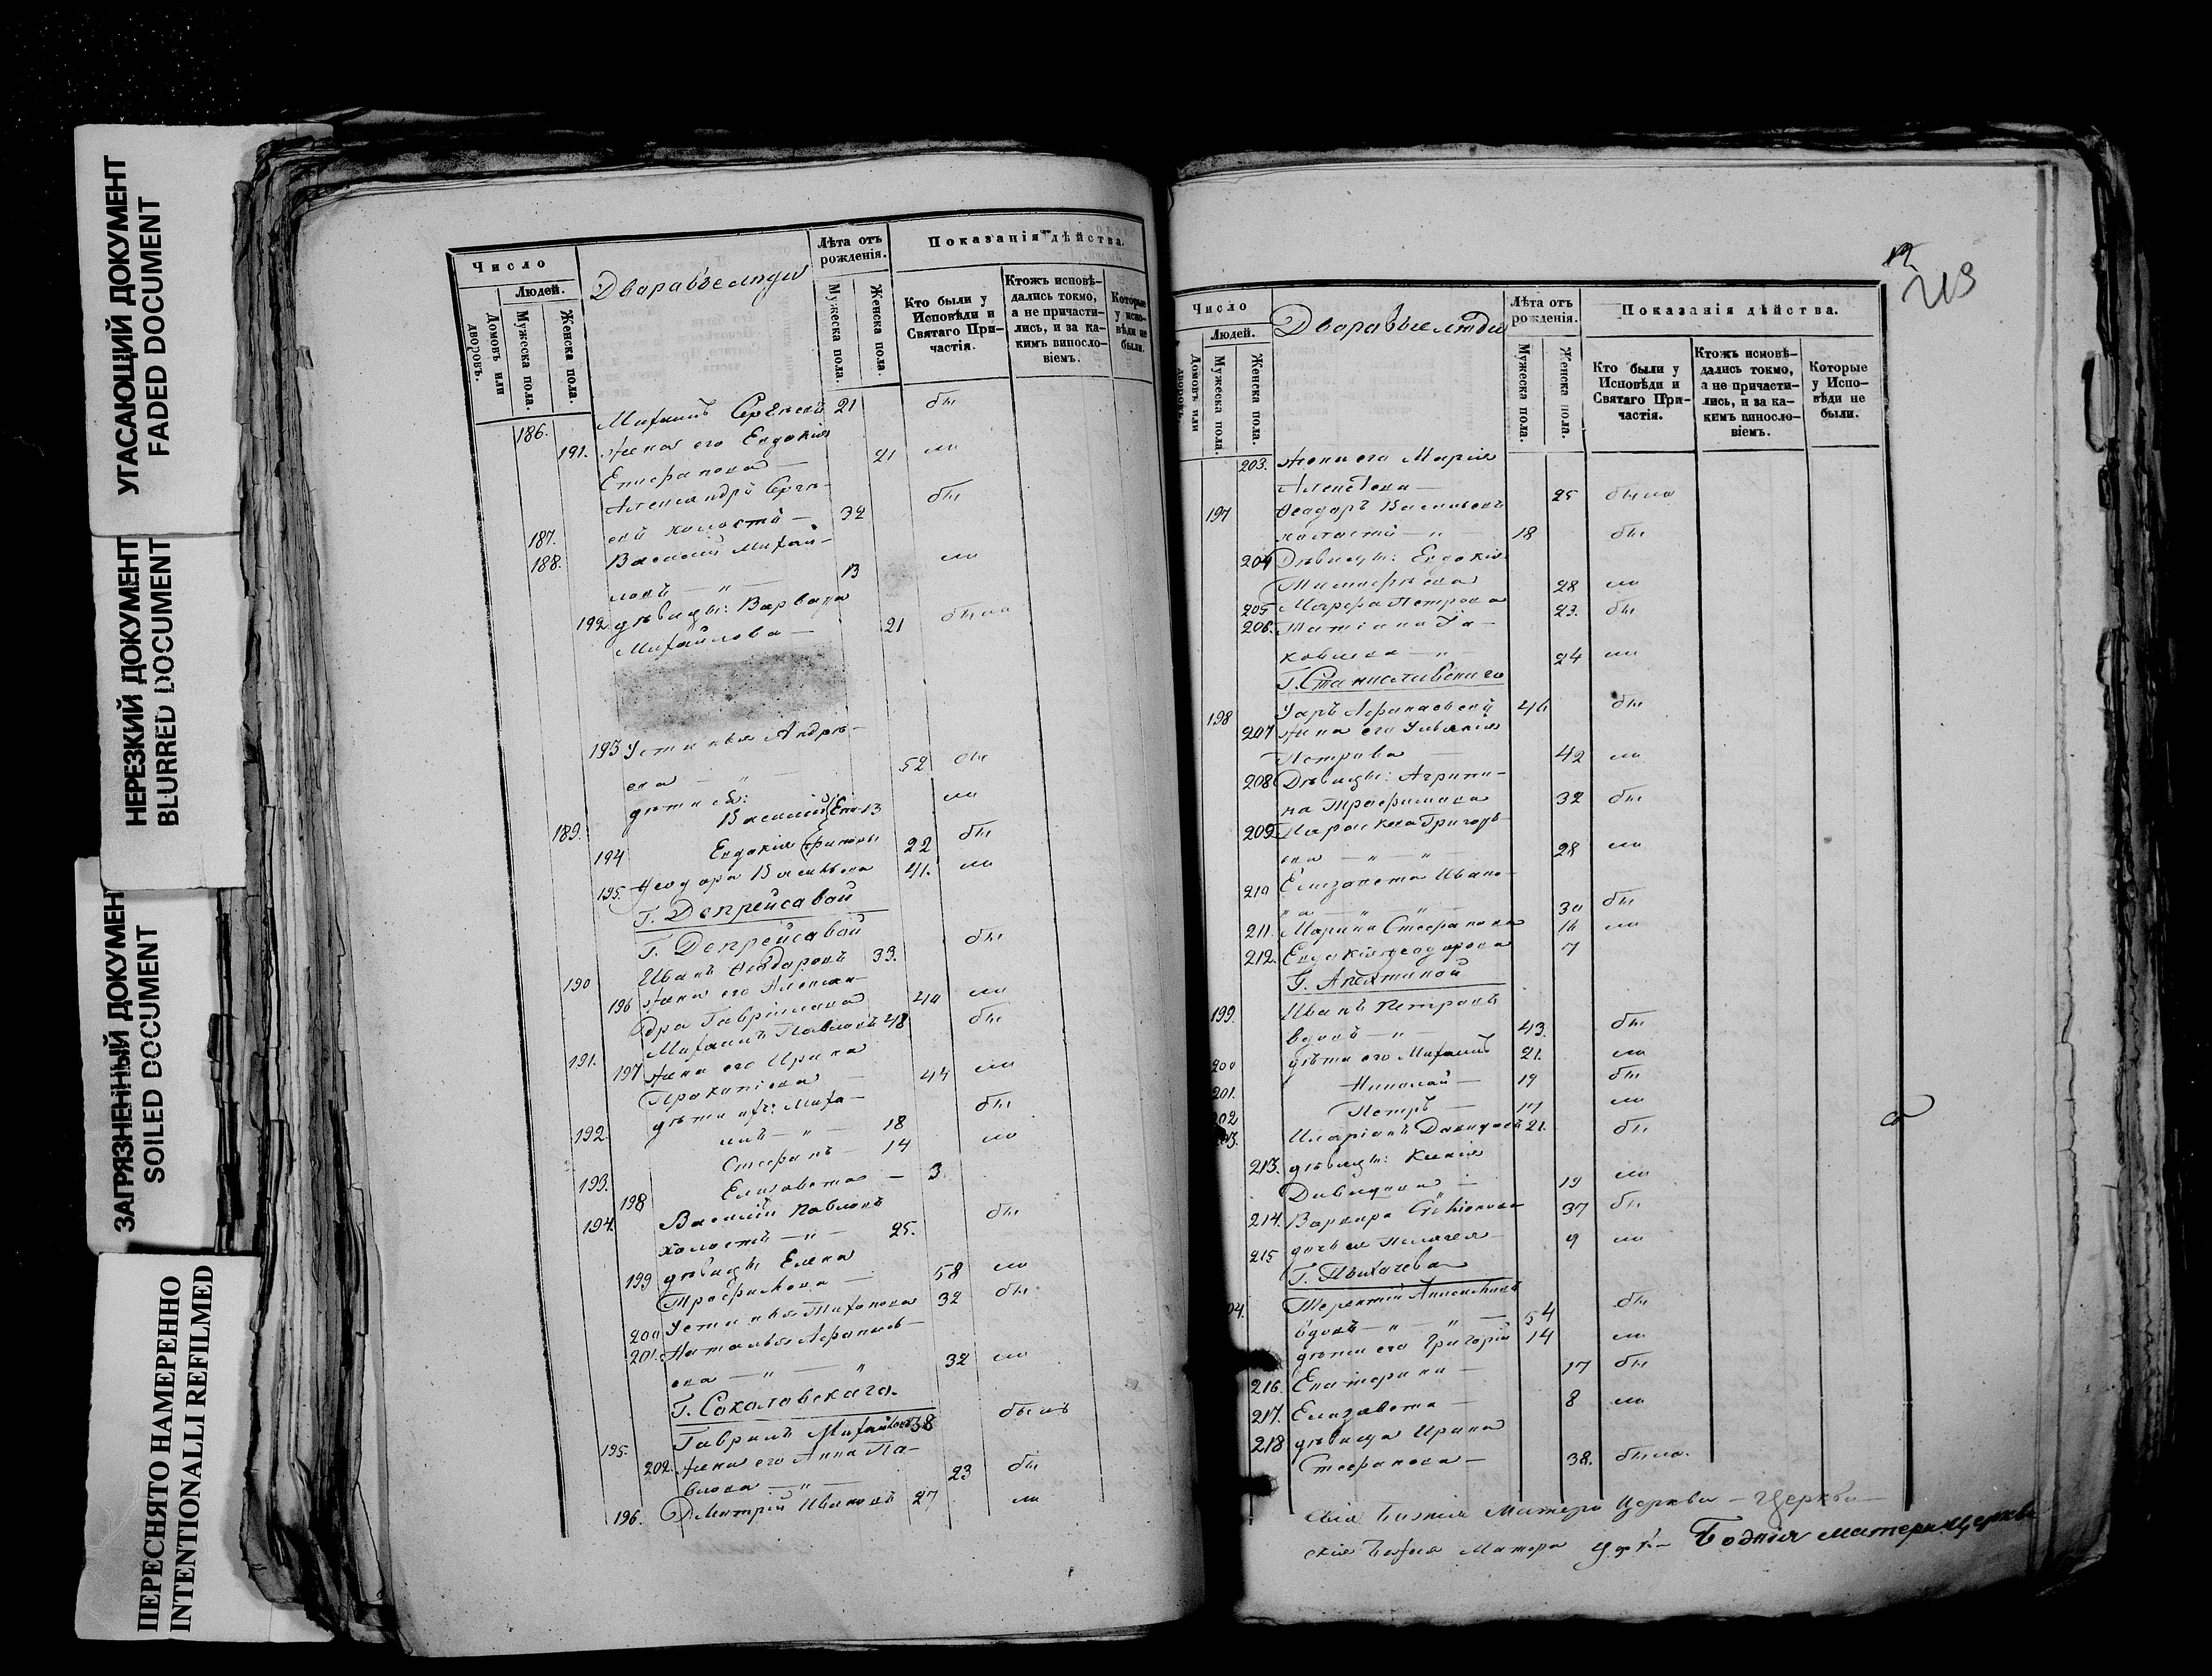 УГАСАЮЩИЙ ДОКУМЕНТ
FADED DOCUMENT
НЕРЕЗКИЙ ДОКУМЕНТ
BLURRED DOCUMENT
ЗАГРЯЗНЕННЫЙ ДОКУМЕН
SOILED DOCUMENT
ПЕРЕСНЯТО НАМЕРЕННО
INTENTIONALLI REFILMED
Число
Людей.
Домовъ или дворовъ.
Мужеска пола.
Женска пола.
Дваравые люди
Лѣта отъ рожденія.
Мужеска пола.
Женска пола.
Показанія дѣйства.
Кто были у Исповѣди и Святаго При-частія.
Ктожъ исповѣ-дались токмо, а не причасти-лись, и за ка-кимъ винослo-віемъ.
Которые у испо-вѣди не были.
186. Михаилъ 21 бы
191. Жена его Евдокія
21 ли
Александръ
187. холостъ — 32 бы
188. Василій Михай-
ловъ — " — 13 ли
192 дѣвицы: Варвара
Михайлова — 21 была
193 Устинья Андре-
ева — " — 52 бы
дѣти ея:
189. Василій 13 ли
194 Евдокія 22 бы
195. Ѳеодора Васильева 41. ли
Г. Депрейсавой
Г. Депрейсавой
190 Иванъ Ѳеодаровъ 33. бы
196 Жена его Алексан-
дра Гавриилова ли
191. Михаилъ Павловъ 48 бы
197 Жена его Ирина
Пракапіева — 44 ли
192. дѣти ихъ: Миха-
илъ — " — 18 бы
193. Стефанъ — 14 ли
198 Елизавета — 3.
194. Василій Павловъ
холостъ — " — 25. бы
199 дѣвицы Елена
Трофимова — 58 ли
200 Устинья 32 бы
201. Наталья Афанась-
ева — " — " 32 ли
Г. Сакалавскаго.
195. Гаврилъ Михайловъ 38 былъ
202. Жена его Анна Па-
влова — " — 23 бы
196. Дмитрій Ивановъ 27 ли
213
Число
Людей.
Домовъ или дворовъ.
Мужеска пола
Женска пола.
Дваравые люди
Лѣта отъ рожденія.
Мужеска пола.
Женска пола.
Показанія дѣйства.
Кто были у Исповѣди и Святаго При-частія.
Ктожъ исповѣ-дались токмо, а не причасти-лись, и за ка-кимъ винослo-віемъ.
Которые у Испо-вѣди не были.
203. Жена его Марія
25 была
197 Ѳеодаръ Васильевъ
холостъ — " — 18 бы
204 Дѣвицы: Евдокія
Тимофѣева 28 ли
205 Марфа Петрова 23. бы
206. Татіана Іа-
ковлева — " — 24 ли
Г. Станиславскаго
198 46 бы
207 Жена его
Петрова 42 ли
208 Дѣвицы: Агрипи-
на Трофимова 32 бы
209 Параскева Григорь-
ева — " — " — 28 ли
210 Елизавета Ивано-
ва — " — " — 30 бы
211. Марина Стефанова 16 ли
212. Евдокія Ѳеодорова 7
Г. Апехтиной
199. Иванъ Петровъ
вдовъ — " — 43. бы
200 дѣти его Михаилъ 21. ли
201. Николай — 19 бы
202 Петръ — ли
03. Иларіонъ Давидовъ 21. бы
213. дѣвицы: Ксенія
Давидова — 19 ли
214. Варвара 37 бы
215 дочь ея Пелагея — 9 ли
Г. Пыхачева
04. Терентій
вдовъ — " — " — 54 бы
дѣти его Григорій 14 ли
216. Екатерина — 17 бы
217. Елизавета — 8 ли
218 дѣвица Ирина
Стефанова — 38. была.
Божія Матери Церкви — Церкви
Божія Матери Божія матери Церкви